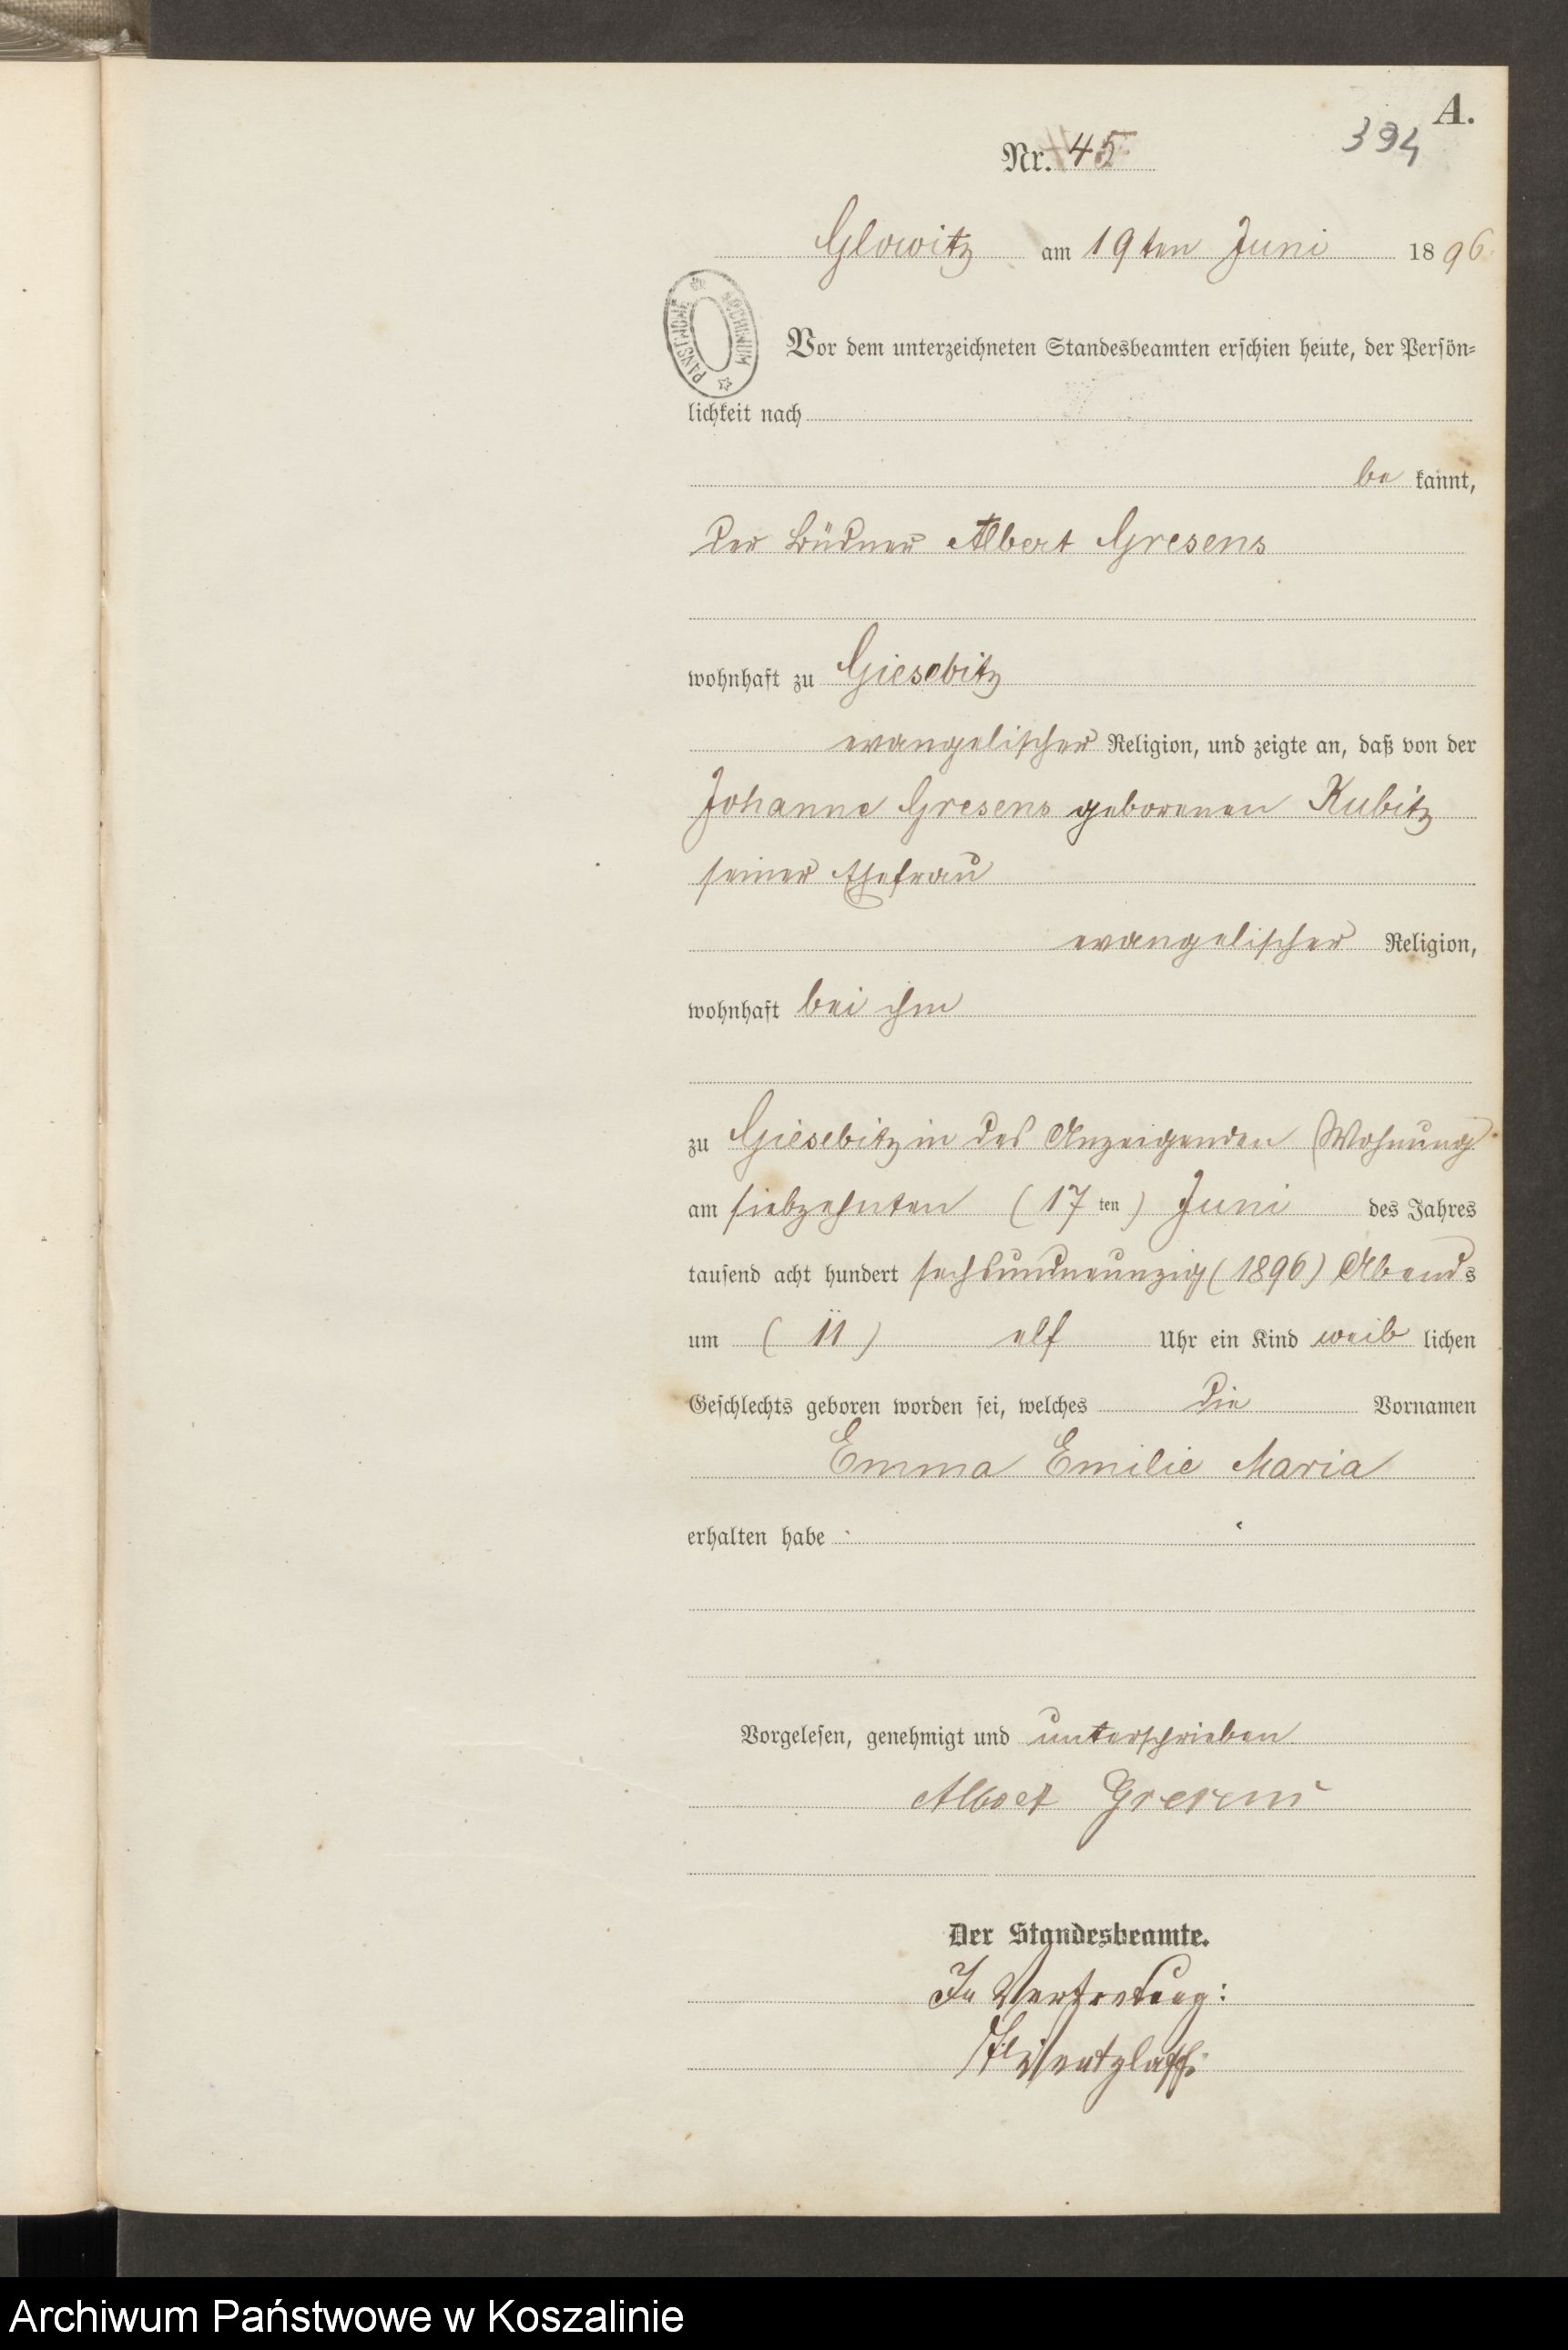 A.
394
Nr. 45
Glowitz am 19ten Juni 1896.
ARCHIWUM PAŃSTWOWE
Vor dem unterzeichneten Standesbeamten erschien heute, der Persön-
lichkeit nach
be kannt,
der Büdner Albert Gresens
wohnhaft zu Giesebitz
evangelischer Religion, und zeigte an, daß von der
Johanne Gresens geborenen Kubitz
seiner Ehefrau
evangelischer Religion,
wohnhaft bei ihm
zu Giesebitz in des Anzeigenden Wohnung
am siebzehnten (17 ten) Juni des Jahres
tausend acht hundert sechsundneunzig (1896) Abends
um (11) elf Uhr ein Kind weib lichen
Geschlechts geboren worden sei, welches die Vornamen
Emma Emilie Maria
erhalten habe
Vorgelesen, genehmigt und unterschrieben
Albert Gresens
Der Standesbeamte.
In Vertretung:
Wentzlaff.
Archiwum Państwowe w Koszalinie